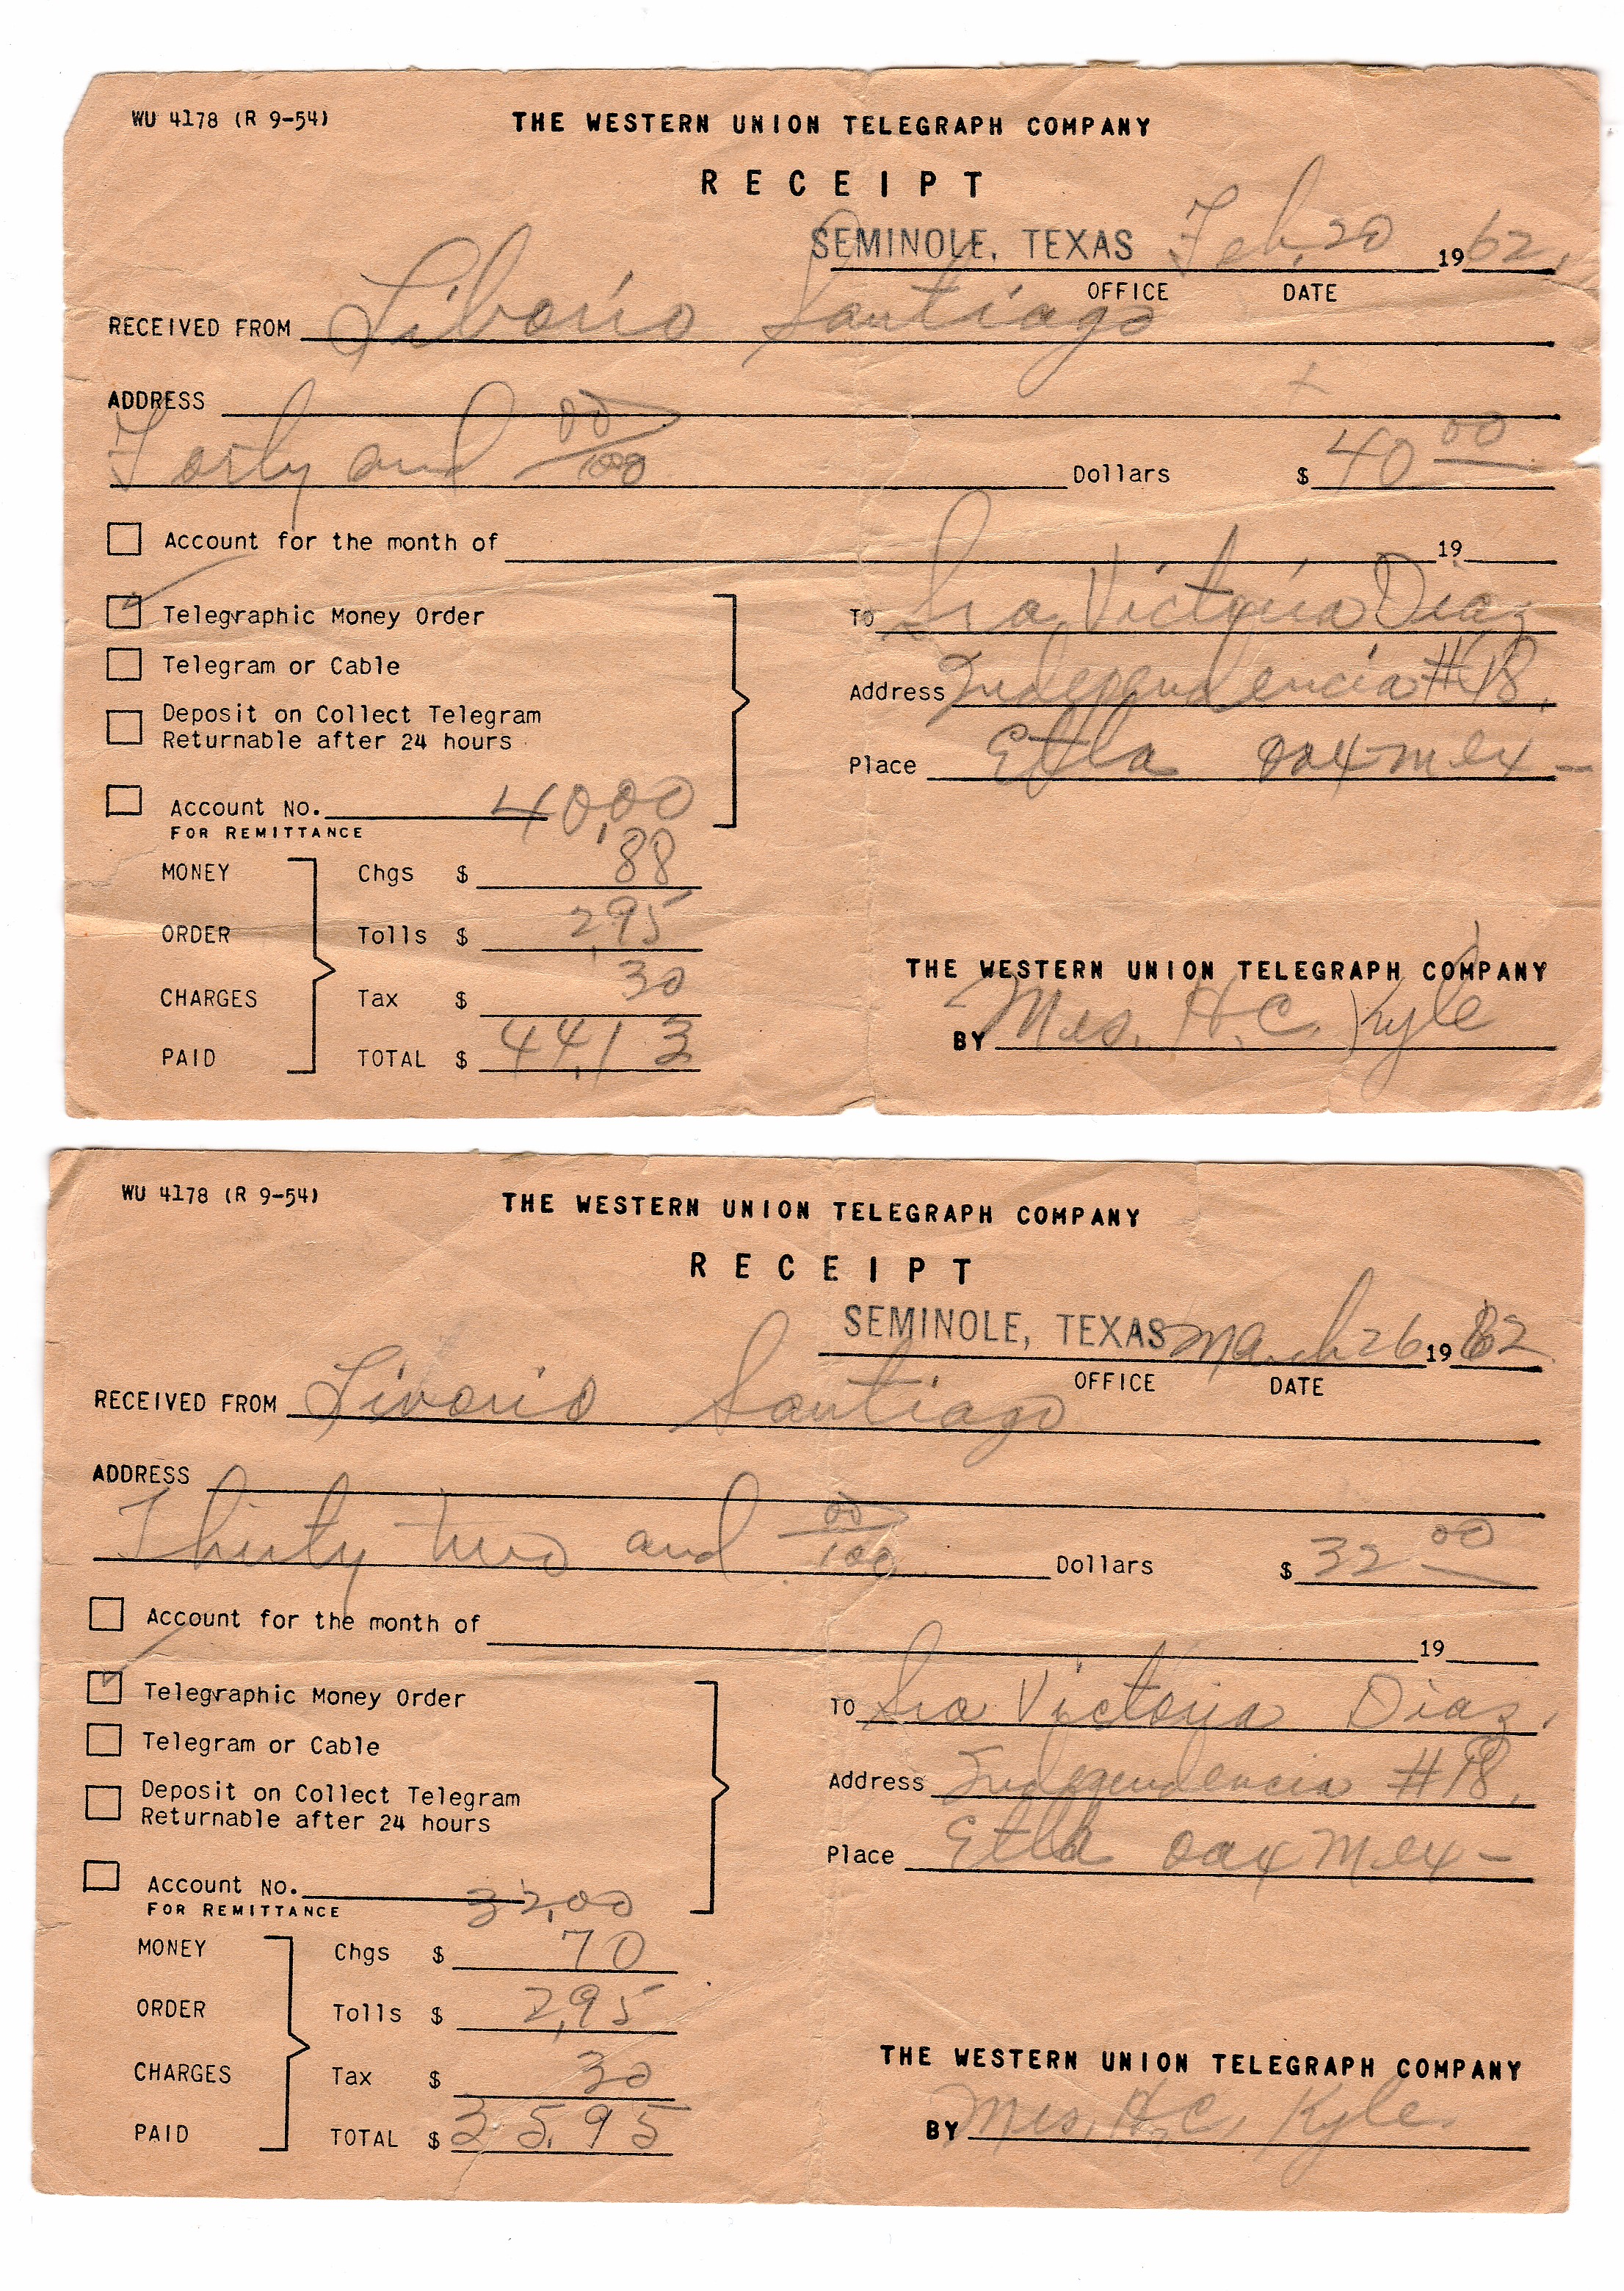 WU 4178 (R 9-54)
THE WESTERN UNION TELEGRAPH COMPANY
RECEIPT
SEMINOLE, TEXAS Feb. 20 1962
OFFICE DATE
RECEIVED FROM Liborio Santiago
ADDRESS
Forty and 00/100 Dollars $ 40 00
Account for the month of 19
Telegraphic Money Order
Telegram or Cable
Deposit on Collect Telegram
Returnable after 24 hours
Account No. 40.00
FOR REMITTANCE
TO Sra Victoria Diaz
Address Independencia #18.
Place Etla oax mex -
MONEY ORDER CHARGES PAID
Chgs $ 88
Tolls $ 2.95
Tax $ 30
TOTAL $ 44.13
THE WESTERN UNION TELEGRAPH COMPANY
BY Mrs. H.C. Kyle
WU 4178 (R 9-54)
THE WESTERN UNION TELEGRAPH COMPANY
RECEIPT
SEMINOLE, TEXAS March 26 1962
OFFICE DATE
RECEIVED FROM Livorio Santiago
ADDRESS
Thirty two and 00/100 Dollars $ 32 00
Account for the month of 19
Telegraphic Money Order
Telegram or Cable
Deposit on Collect Telegram
Returnable after 24 hours
Account No. 32.00
FOR REMITTANCE
TO Sra Victoria Diaz,
Address Independencia #18.
Place Etla oax Mex -
MONEY ORDER CHARGES PAID
Chgs $ 70
Tolls $ 2.95
Tax $ 30
TOTAL $ 35.95
THE WESTERN UNION TELEGRAPH COMPANY
BY Mrs. H.C. Kyle.